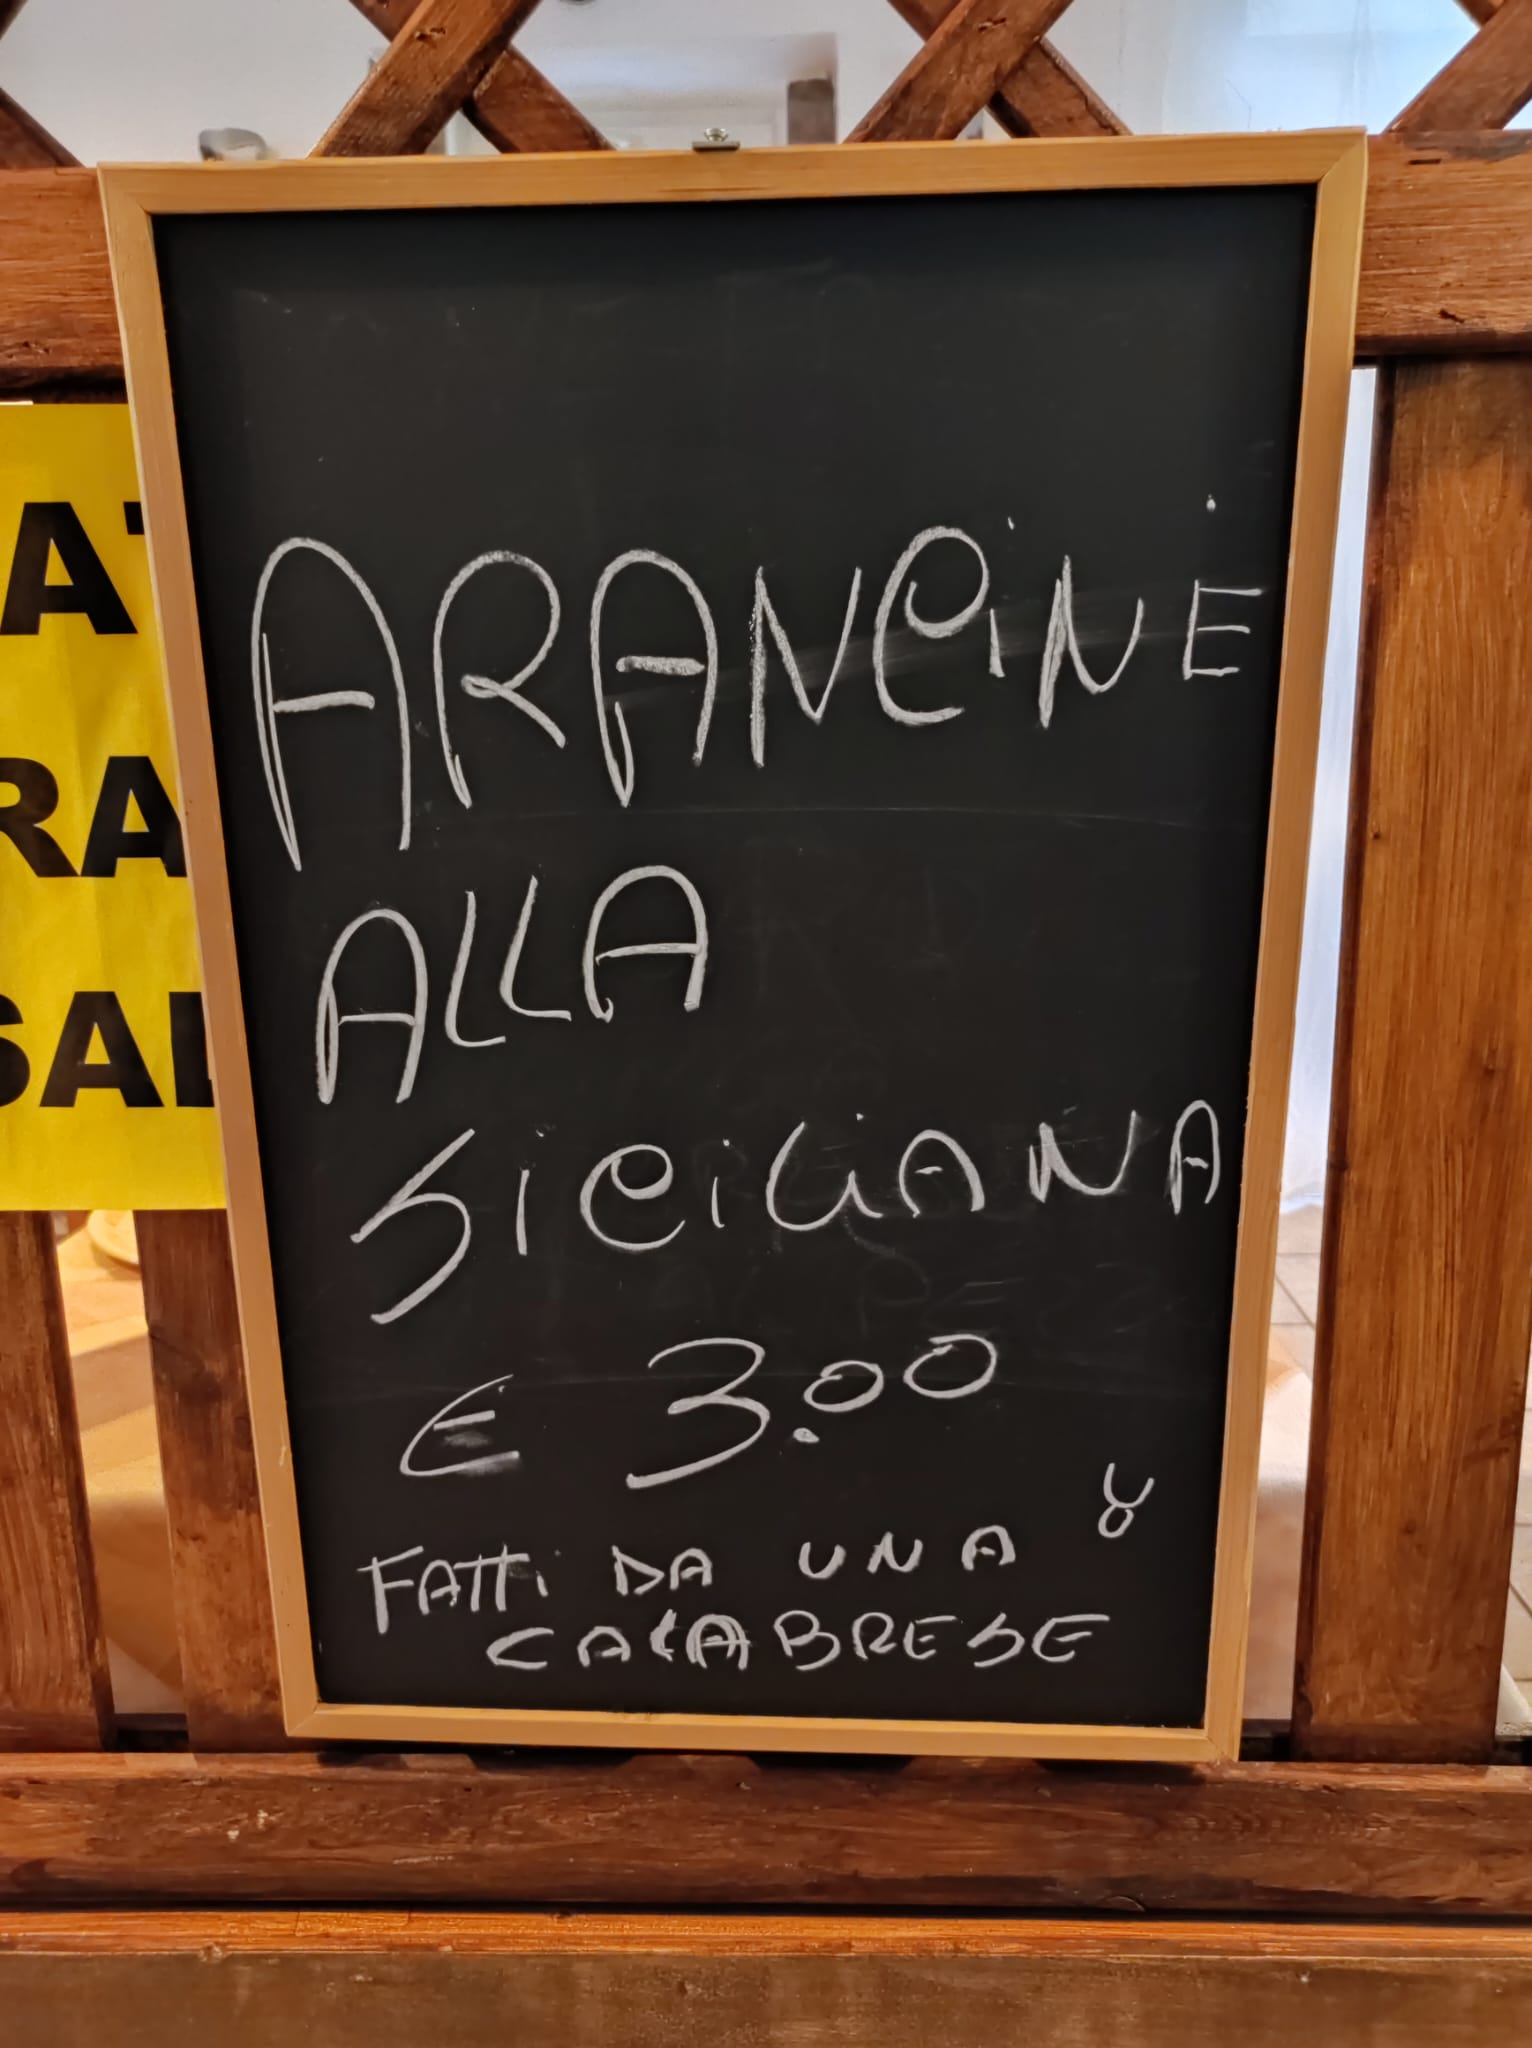 AT
RA
SAL
ARANCINE
ALLA
SICILIANA
€ 3.00
FATTI DA UNA
CALABRESE